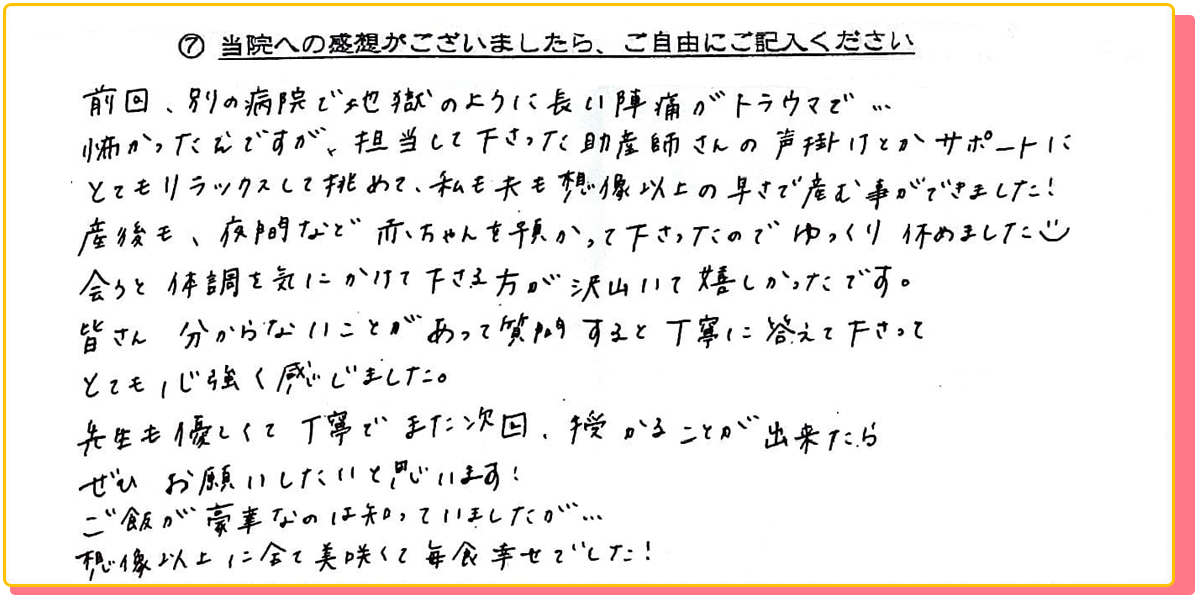 ⑦ 当院への感想がございましたら、ご自由にご記入ください
前回、別の病院で地獄のように長い陣痛がトラウマで…
怖かったんですが、担当して下さった助産師さんの声掛けとかサポートに
とてもリラックスして挑めて、私も夫も想像以上の早さで産む事ができました!
産後も、夜間など赤ちゃんを預かって下さったのでゆっくり休めました
会うと体調を気にかけて下さる方が沢山いて嬉しかったです。
皆さん 分からないことがあって質問すると丁寧に答えて下さって
とても心強く感じました。
先生も優しくて丁寧でまた次回、授かることが出来たら
ぜひお願いしたいと思います!
ご飯が豪華なのは知っていましたが…
想像以上に全て美味くて毎食幸せでした!